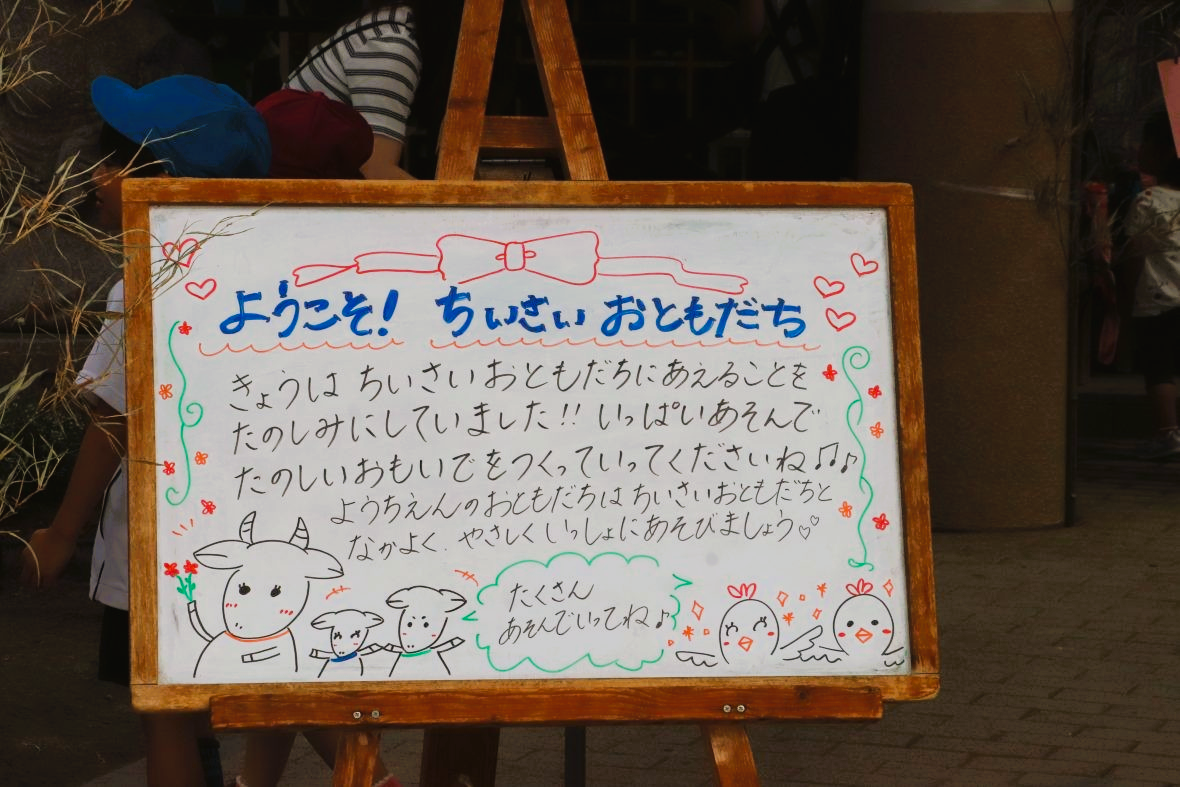 ようこそ! ちいさい おともだち
きょうは ちいさいおともだちにあえることを
たのしみにしていました!! いっぱいあそんで
たのしいおもいでをつくっていってくださいね♫♪
ようちえんのおともだちはちいさいおともだちと
なかよく、やさしくいっしょにあそびましょう♡♡
たくさん
あそんでいってね♪